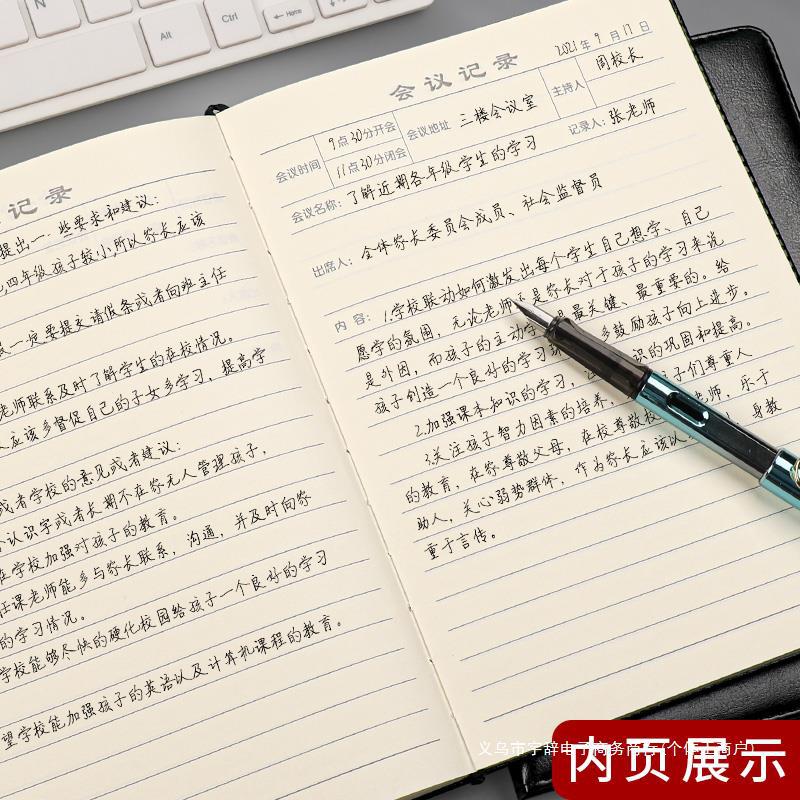 N
Alt
Ctrl
Home
End
记录
提出一些要求和建议:
四年级孩子较小所以家长应该
一定要提交请假条或者向班主任
老师联系及时了解学生的在校情况。
应该多督促自己的子女多学习,提高学
或者学校的意见或者建议:
认识字或者长期不在家无人管理孩子,
在学校加强对孩子的教育。
任课老师能多与家长联系,沟通,并及时向家
的学习情况。
学校能够尽快的硬化校园给孩子一个良好的学习
望学校能加强孩子的英语以及计算机课程的教育。
会议记录
2021年9月17日
会议时间
9点30分开会
11点30分闭会
会议地址 三楼会议室
主持人 周校长
记录人: 张老师
会议名称: 了解近期各年级学生的学习
出席人: 全体家长委员会成员、社会监督员
内容: 1.学校联动如何激发出每个学生自己想学、自己
愿学的氛围,无论老师还是家长对于孩子的学习来说
是外因,而孩子的主动学 是最关键、最重要的。给
孩子创造一个良好的学习环 多鼓励孩子向上进步。
2.加强课本知识的学习, 识的巩固和提高。
3.关注孩子智力因素的培养, 子们尊重人
的教育,在家尊敬父母,在校尊敬 老师,乐于
助人,关心弱势群体,作为家长应该以 身教
重于言传。
义乌市宇辞电子商务商行(个体工商户)
内页展示